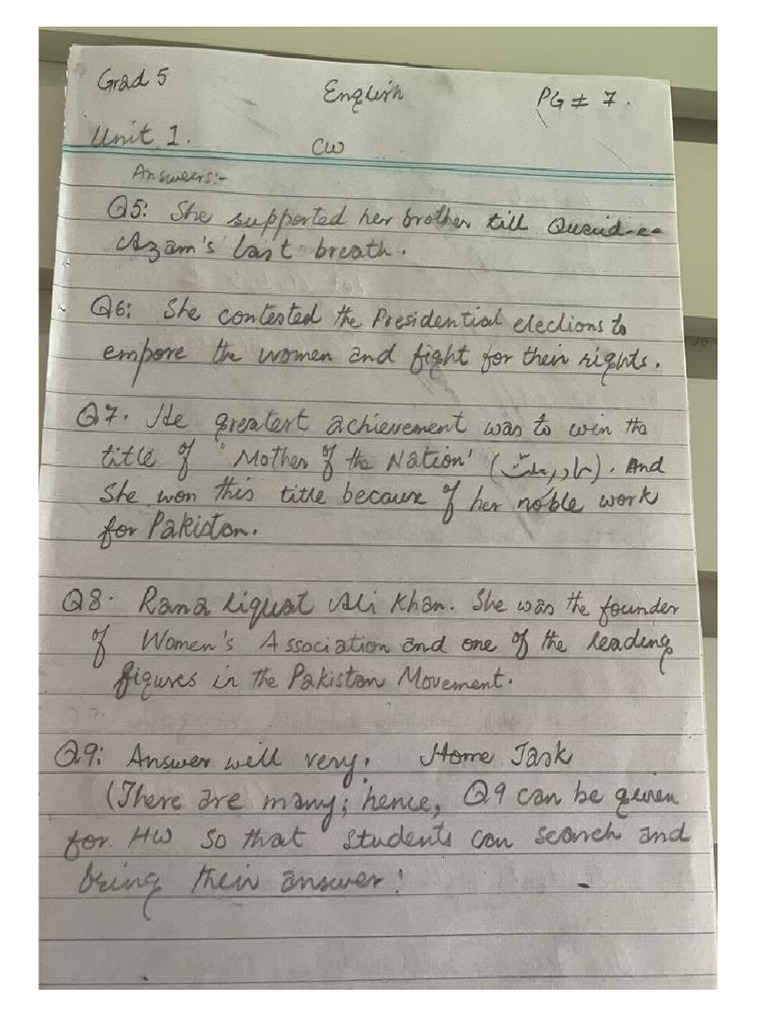 Grad 5 English PG # 7.
Unit 1. CW
Answeers:-
Q5: She supported her brother till Quaid-e-
Azam's last breath.
Q6: She contested the Presidential elections to
empore the women and fight for their rights.
Q7. He greatest achievement was to win the
title of 'Mother of the Nation' (مادرِ ملت). And
She won this title because of her noble work
for Pakistan.
Q8. Rana liquat Ali Khan. She was the founder
of Women's Association and one of the leading
figures in the Pakistan Movement.
Q9: Answer well very. Home Task
(There are many; hence, Q9 can be given
for HW so that students can search and
bring their answer!